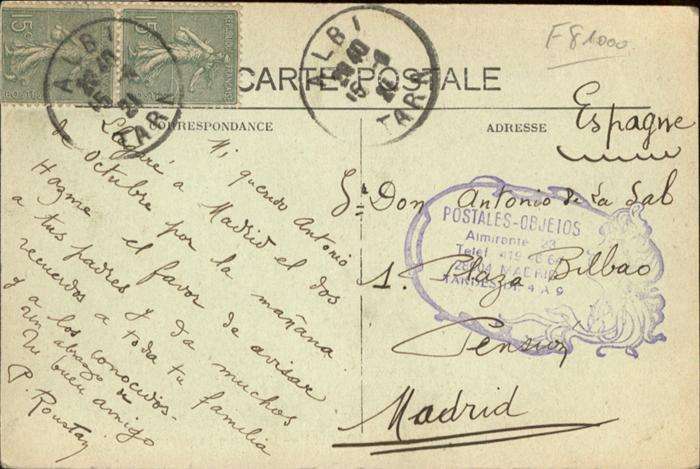 F81000
CARTE POSTALE
CORRESPONDANCE
ADRESSE
ALBI
TARN
ALBI
TARN
Espagne
Mi querido Antonio
Llegaré a Madrid el dos
de Octubre por la mañana.
Hazme el favor de avisar
a tus padres y da muchos
recuerdos a toda tu familia
y a los conocidos.
Un abrazo de
tu buen amigo
P. Roustan
Sr Don Antonio de la Sal
1. Plaza Bilbao
Pension
Madrid
POSTALES-OBJETOS
Almirante 23
28004 MADRID
TARDES DE 4 A 9